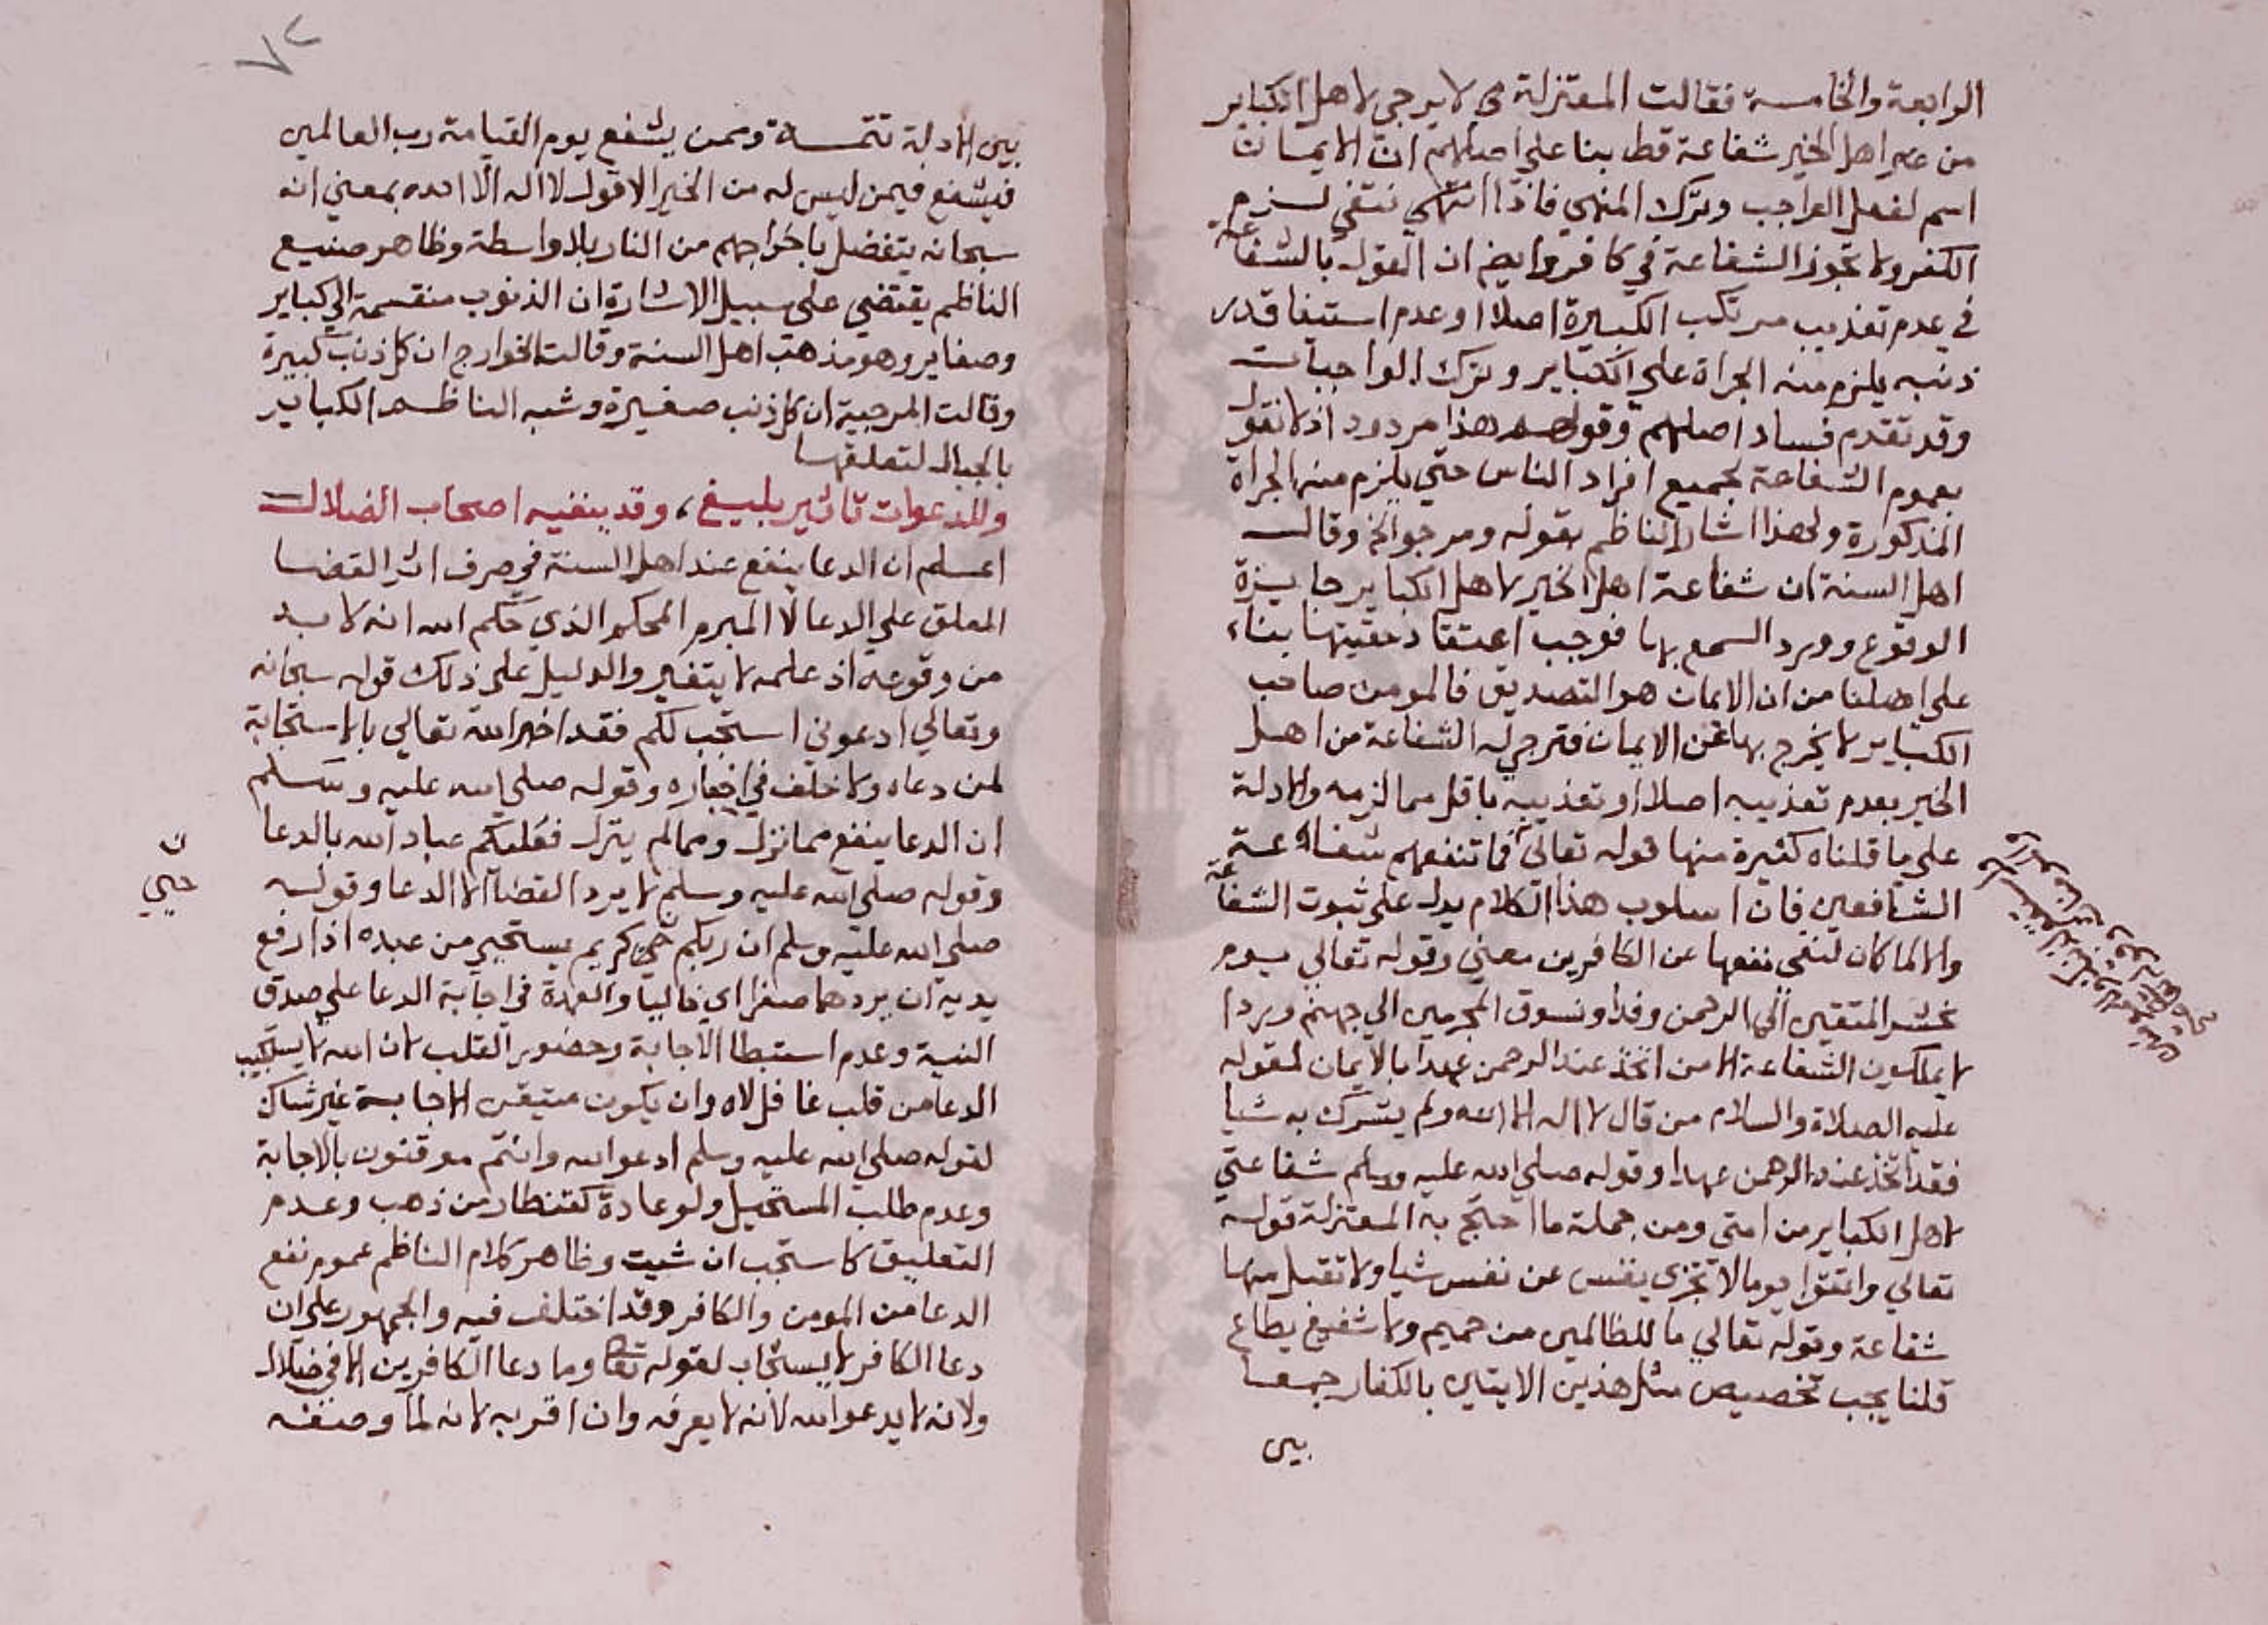 الرابعة والخامسة فقالت المعتزلة لا يرجى لاهل الكباير
من غير اهل الخير شفاعة قط بنا على اصلهم ان الايمان
اسم لفعل الواجب وترك المنهي فاذا انتفي لزم
الكفر ولا تجوز الشفاعة في كافر وايضم ان القول بالشفاعة
في عدم تعذيب مرتكب الكبيرة اصلا او عدم استيفا قدر
ذنبه يلزم منه الجراة علي الكباير وترك الواجبات
وقد تقدم فساد اصلهم وقولهم هذا مردود اذ لا نقول
بعموم الشفاعة لجميع افراد الناس حتي يلزم منه الجراة
المذكورة ولهذا اشار الناظم بقوله ومرجو الخ وقالت
اهل السنة ان شفاعة اهل الخير لاهل الكباير جايزة
الوقوع وورد السمع بها فوجب اعتقاد حقيتها بناء
علي اصلنا من ان الايمان هو التصديق فالمومن صاحب
الكباير لا يخرج بها عن الايمان فترجي له الشفاعة من اهل
الخير بعدم تعذيبه اصلا او تعذيبه باقل مما لزمه والادلة
علي ما قلناه كثيرة منها قوله تعالي فما تنفعهم شفاعة
الشافعين فان اسلوب هذا الكلام يدل علي ثبوت الشفاعة
والا لما كان لنفي نفعها عن الكافرين معني وقوله تعالي يوم
نحشر المتقين الي الرحمن وفدا ونسوق المجرمين الي جهنم وردا
لا يملكون الشفاعة الا من اتخذ عند الرحمن عهدا بالايمان لقوله
عليه الصلاة والسلام من قال لا اله الا الله ولم يشرك به شيا
فقد اتخذ عند الرحمن عهدا وقوله صلي الله عليه وسلم شفاعتي
لاهل الكباير من امتي ومن جملة ما احتج به المعتزلة قوله
تعالي واتقوا يوما لا تجزي نفس عن نفس شيا ولا تقبل منها
شفاعة وقوله تعالي ما للظالمين من حميم ولا شفيع يطاع
قلنا يجب تخصيص مثل هذين الايتين بالكفار جمعا
بين
بين الادلة تتمسة وممن يشفع يوم القيامة رب العالمين
فيشفع فيمن ليس له من الخير الا قول لا اله الا الله بمعني انه
سبحانه يتفضل باخراجهم من النار بلا واسطة وظاهر صنيع
الناظم يقتضي علي سبيل الاشارة ان الذنوب منقسمة الي كباير
وصغاير وهو مذهب اهل السنة وقالت الخوارج ان كل ذنب كبيرة
وقالت المرجية ان كل ذنب صغيرة وشبه الناظم الكباير
بالجبال لتعلقها
وللدعوات تاثير بليغ، وقد ينفيه اصحاب الضلال
اعلم ان الدعا ينفع عند اهل السنة في صرف اثر القضا
المعلق علي الدعا لا المبرم المحكم الذي حكم الله انه لا بد
من وقوعه اذ علمه لا يتغير والدليل علي ذلك قوله سبحانه
وتعالي ادعوني استجب لكم فقد اخبر الله تعالي بالاستجابة
لمن دعاه ولا خلف في اخباره وقوله صلي الله عليه وسلم
ان الدعا ينفع مما نزل ومما لم ينزل فعليكم عباد الله بالدعا
وقوله صلي الله عليه وسلم لا يرد القضا الا الدعا وقوله
صلي الله عليه وسلم ان ربكم حي كريم يستحي من عبده اذا رفع
يديه ان يردهما صفرا اي خاليا والعمدة في اجابة الدعا علي صدق
النية وعدم استبطا الاجابة وحضور القلب لان الله لا يستجيب
الدعا من قلب غافل لاه وان يكون متيقن الاجابة غير شاك
لقوله صلي الله عليه وسلم ادعوا الله وانتم موقنون بالاجابة
وعدم طلب المستحيل ولو عادة كقنطار من ذهب وعدم
التعليق كاستجب ان شيت وظاهر كلام الناظم عموم نفع
الدعا من المومن والكافر وقد اختلف فيه والجمهور علي ان
دعا الكافر لا يستجاب لقوله تعا وما دعا الكافرين الا في ضلال
ولانه لا يدعوا الله لانه لا يعرفه وان اقر به لانه لما وصفه
ن
حيي